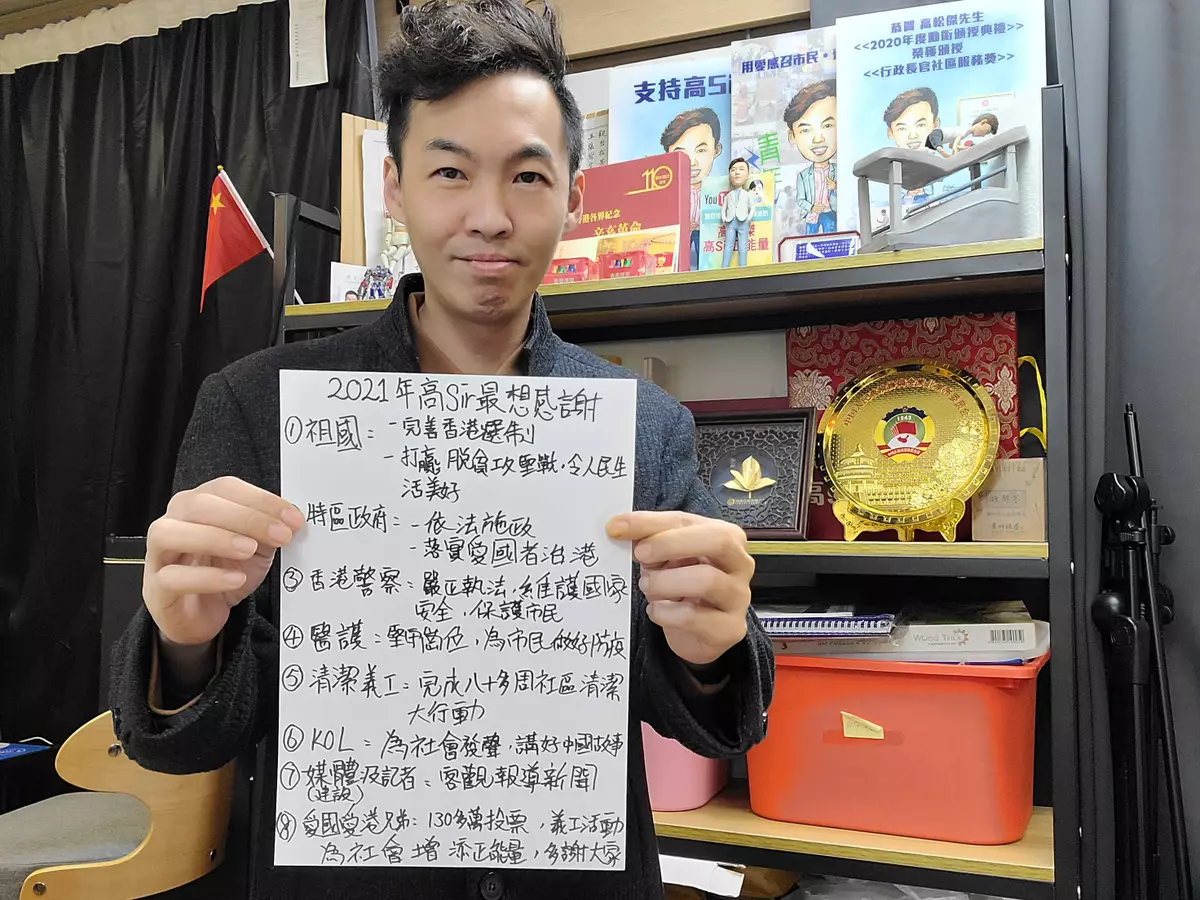 恭賀 高松傑先生
<<2020年度勳銜頒授典禮>>
榮獲頒授
<<行政長官社區服務獎>>
用愛感召市民
支持高Si
110
香港各界紀念
辛亥革命
You
高S
能量
2021年高Sir最想感謝
① 祖國：-完善香港選制
-打贏脫貧攻堅戰，令人民生
活美好
特區政府：-依法施政
-落實愛國者治港
③ 香港警察：嚴正執法，維護國家
安全，保護市民
④ 醫護：堅守崗位，為市民做好防疫
⑤ 清潔義工：完成八十多周社區清潔
大行動
⑥ KOL：為社會發聲，講好中國故事
⑦ 媒體及記者：客觀報導新聞
(建設)
⑧ 愛國愛港兄弟：130多萬投票，義工活動
為社會增添正能量，多謝大家
1949
WOOD TREE